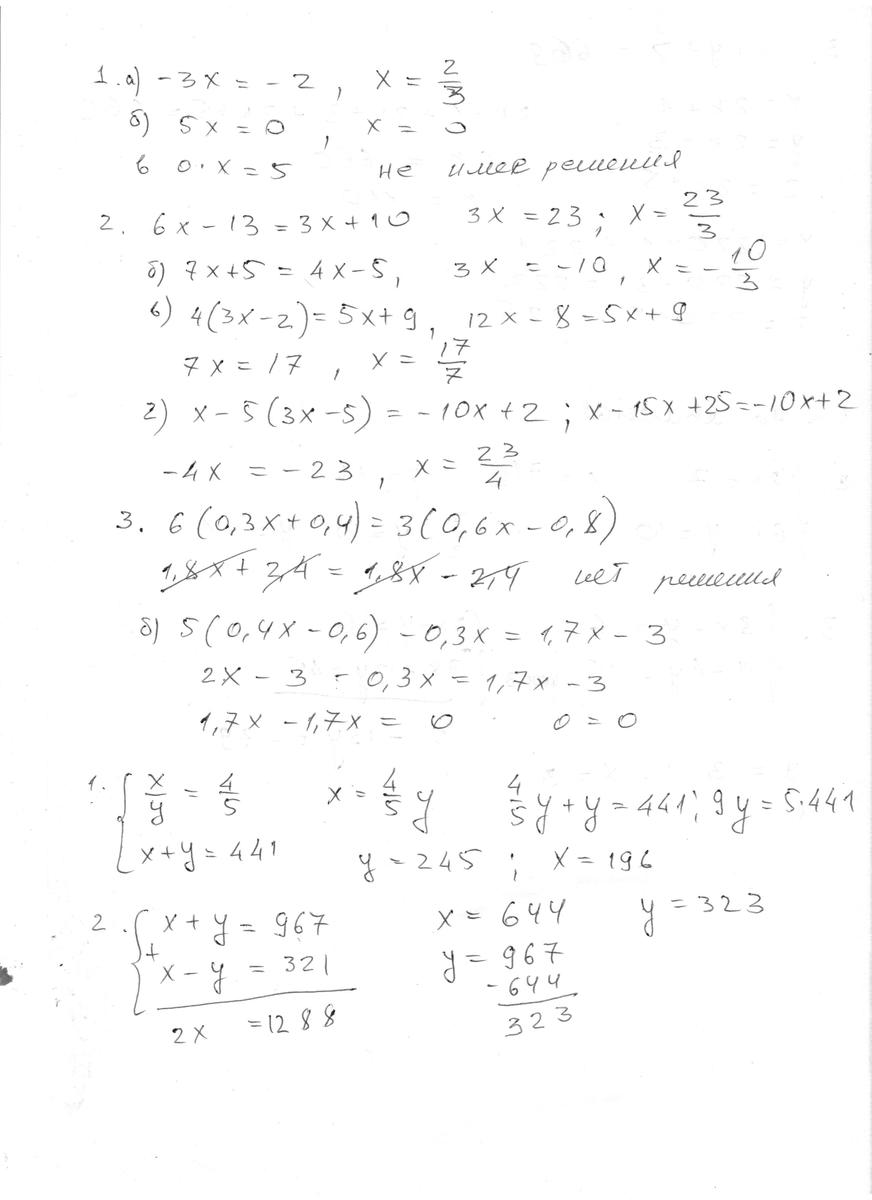 1. а) -3x = -2 , x = 2/3
б) 5x = 0 , x = 0
в 0·x = 5 не имее решения
2. 6x - 13 = 3x + 10 3x = 23 ; x = 23/3
б) 7x + 5 = 4x - 5, 3x = -10, x = -10/3
в) 4(3x - 2) = 5x + 9, 12x - 8 = 5x + 9
7x = 17 , x = 17/7
г) x - 5(3x - 5) = -10x + 2 ; x - 15x + 25 = -10x + 2
-4x = -23 , x = 23/4
3. 6(0,3x + 0,4) = 3(0,6x - 0,8)
1,8x + 2,4 = 1,8x - 2,4 нет решения
б) 5(0,4x - 0,6) - 0,3x = 1,7x - 3
2x - 3 - 0,3x = 1,7x - 3
1,7x - 1,7x = 0 0 = 0
1. { x/y = 4/5 x = 4/5 y 4/5 y + y = 441; 9y = 5·441
x + y = 441 y = 245 ; x = 196
2. { x + y = 967 x = 644 y = 323
+ x - y = 321 y = 967
- 644
2x = 1288 323